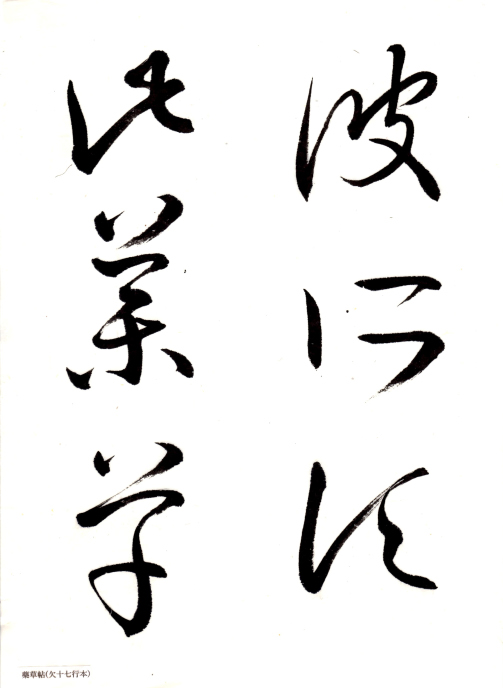 彼所須
此藥草
藥草帖(欠十七行本)